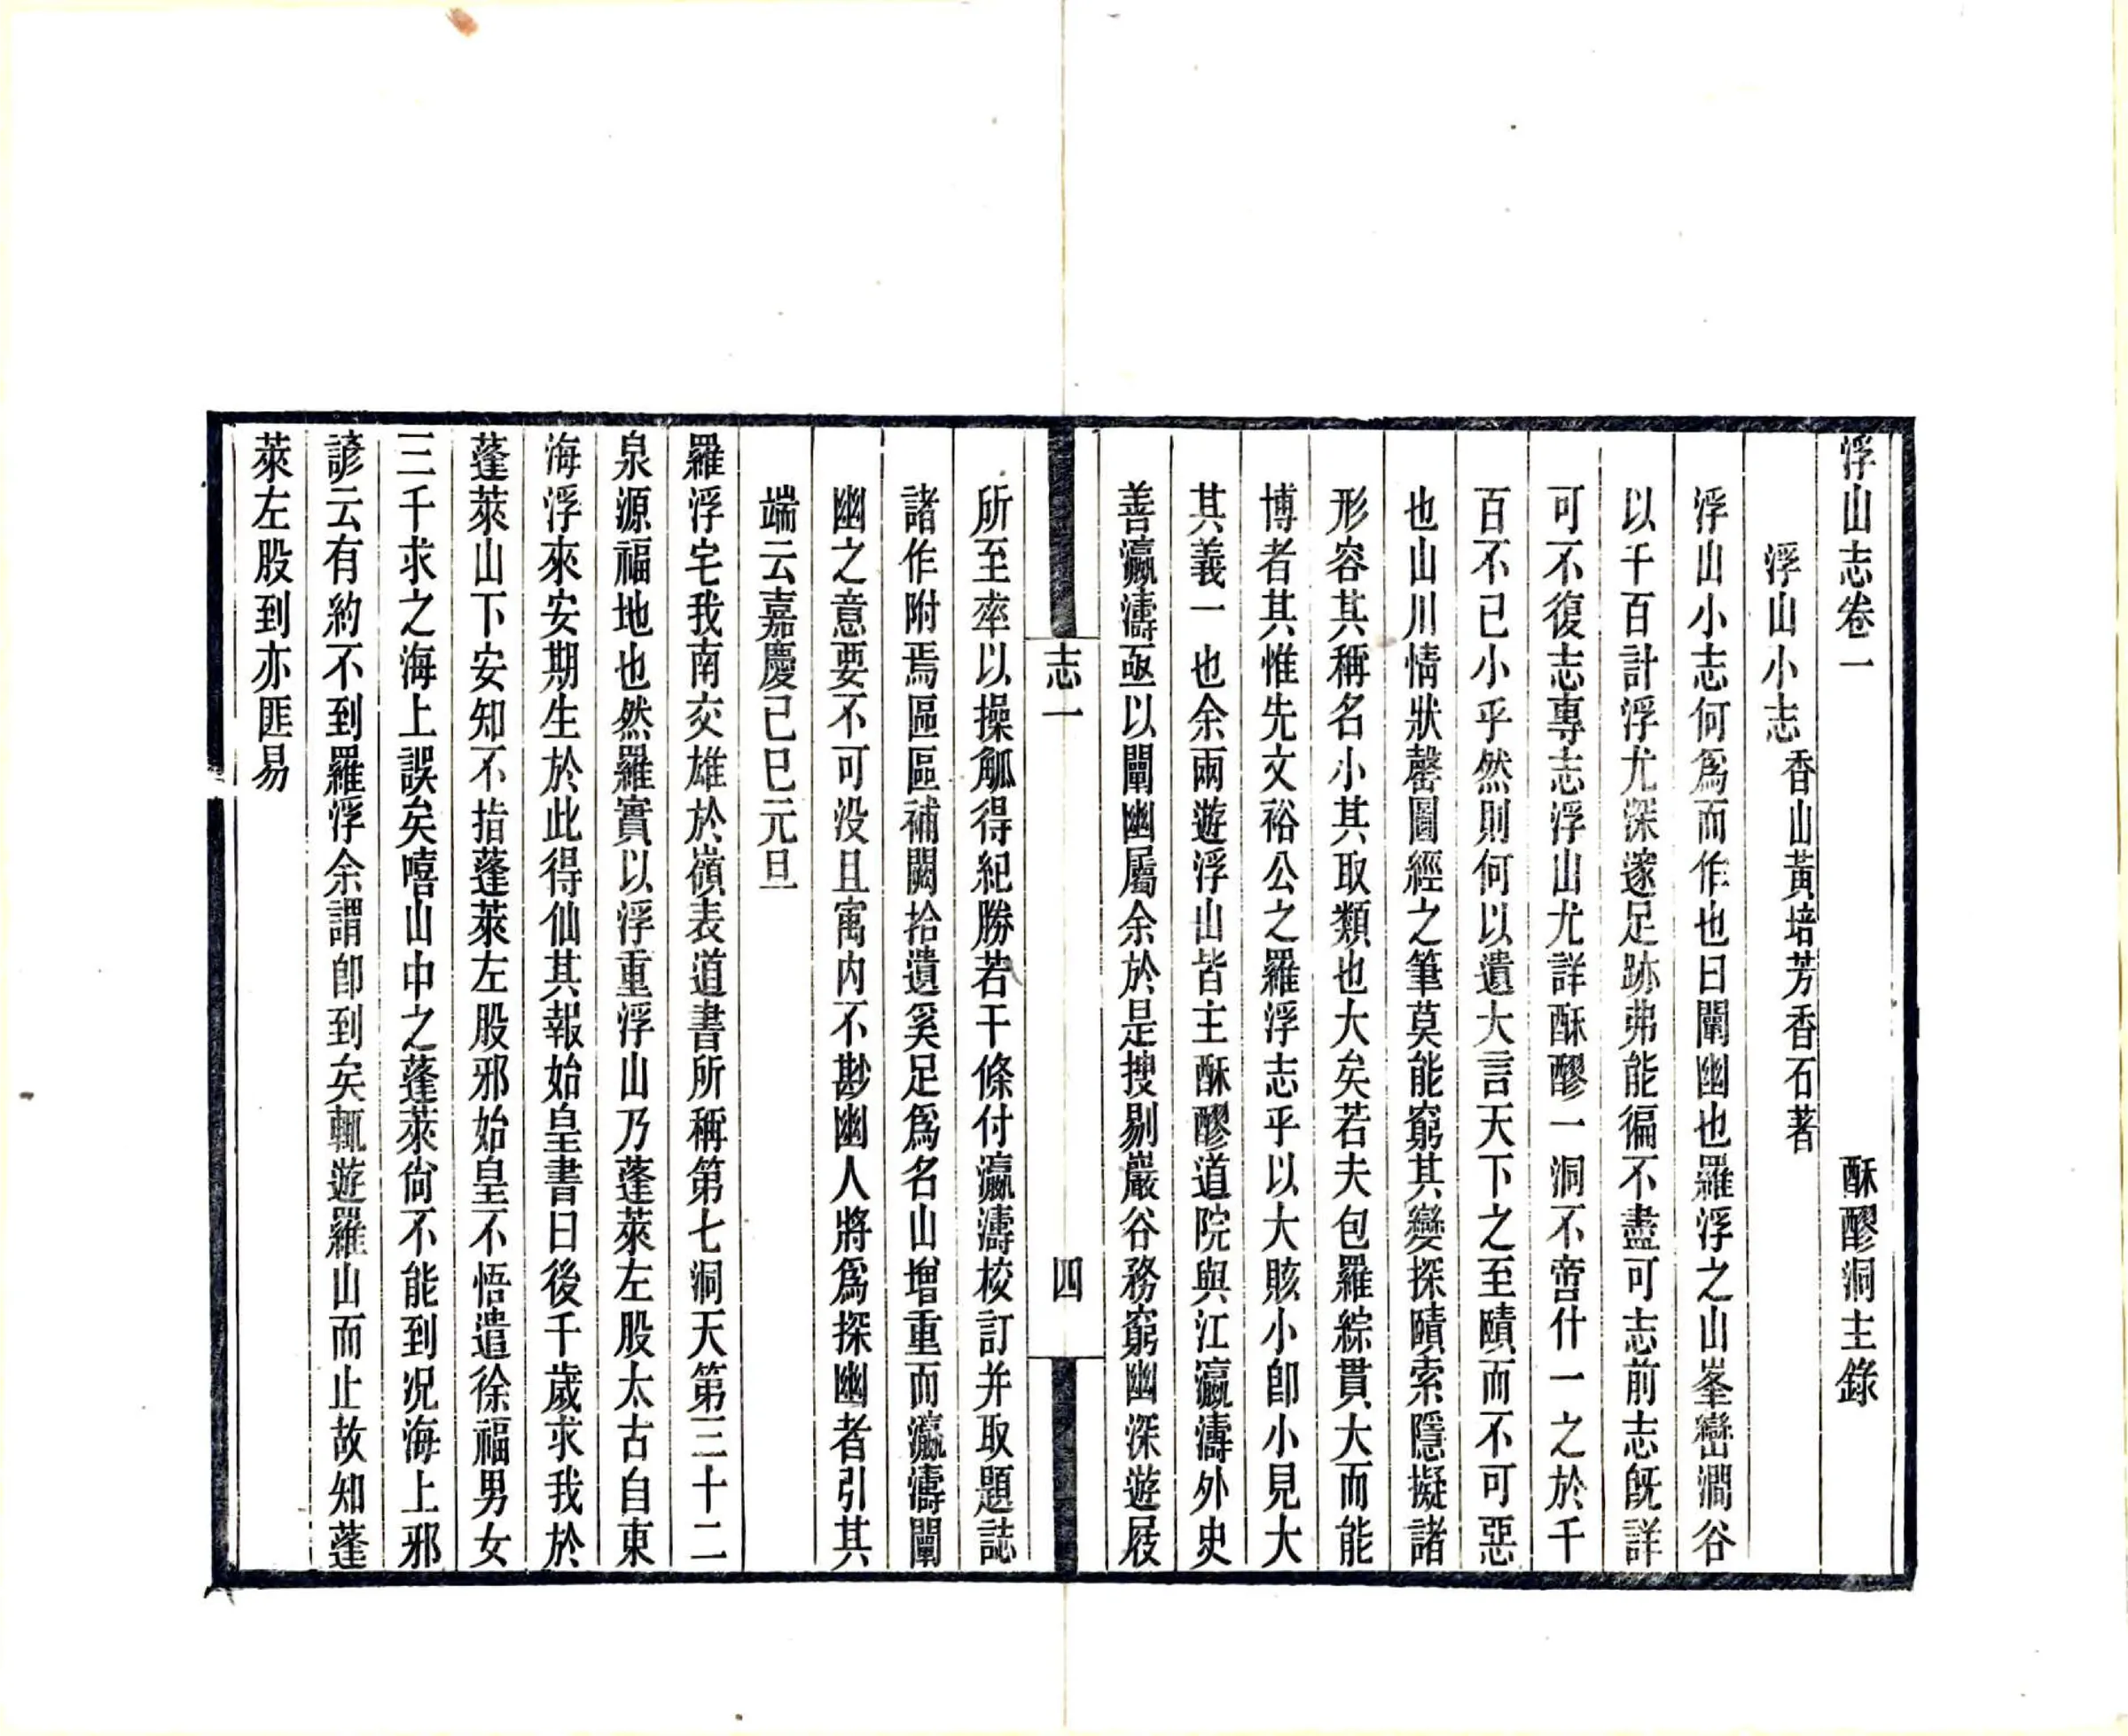 浮山志卷一　酥醪洞主錄
浮山小志　香山黃培芳香石著
浮山小志何爲而作也曰闡幽也羅浮之山峯巒澗谷
以千百計浮尤深邃足跡弗能徧不盡可志前志旣詳
可不復志專志浮山尤詳酥醪一洞不啻什一之於千
百不已小乎然則何以遺大言天下之至賾而不可惡
也山川情狀罄圖經之筆莫能窮其變探賾索隱擬諸
形容其稱名小其取類也大矣若夫包羅綜貫大而能
博者其惟先文裕公之羅浮志乎以大賅小卽小見大
其義一也余兩遊浮山皆主酥醪道院與江瀛濤外史
善瀛濤亟以闡幽屬余於是搜剔巖谷務窮幽深遊屐
志一　四
所至率以操觚得紀勝若干條付瀛濤校訂并取題誌
諸作附焉區區補闕拾遺奚足爲名山增重而瀛濤闡
幽之意要不可没且寓内不尠幽人將爲探幽者引其
端云嘉慶己巳元旦
羅浮宅我南交雄於嶺表道書所稱第七洞天第三十二
泉源福地也然羅實以浮重浮山乃蓬萊左股太古自東
海浮來安期生於此得仙其報始皇書曰後千歲求我於
蓬萊山下安知不指蓬萊左股邪始皇不悟遣徐福男女
三千求之海上誤矣嘻山中之蓬萊尙不能到况海上邪
諺云有約不到羅浮余謂卽到矣輒遊羅山而止故知蓬
萊左股到亦匪易